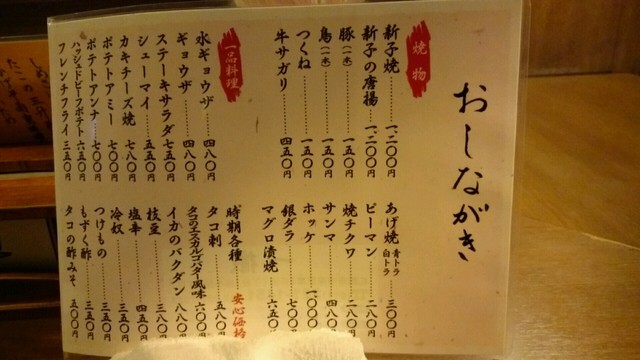 おしながき
焼物
新子焼 一、二〇〇円
新子の唐揚 一、二〇〇円
豚(一本) 一五〇円
鳥(一本) 一五〇円
つくね 一五〇円
牛サガリ 四五〇円
あげ焼 青トラ 白トラ 三〇〇円
ピーマン 二八〇円
焼チクワ 二八〇円
サンマ 四八〇円
ホッケ 一〇〇〇円
銀ダラ 七〇〇円
マグロ漬焼 六五〇円
一品料理
水ギョウザ 四八〇円
ギョウザ 四八〇円
ステーキサラダ 七五〇円
シューマイ 五五〇円
カキチーズ焼 七八〇円
ポテトアミー 七〇〇円
ポテトアンナ 七〇〇円
ハッシュドビーフポテト 六五〇円
フレンチフライ 三五〇円
時期各種
タコ刺 五八〇円
タコのエスカルゴバター風味 六〇〇円
イカのバクダン 八八〇円
枝豆 三八〇円
塩辛 四五〇円
冷奴 三五〇円
つけもの 三五〇円
もずく酢 三五〇円
タコの酢みそ 五〇〇円